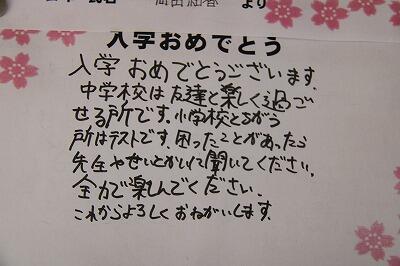 より
入学おめでとう
入学おめでとうございます。
中学校は友達と楽しく過ご
せる所です。小学校とちがう
所はテストです。困ったことがあったら
先生やせいとかいに聞いてください。
全力で楽しんでください。
これからよろしくおねがいします。